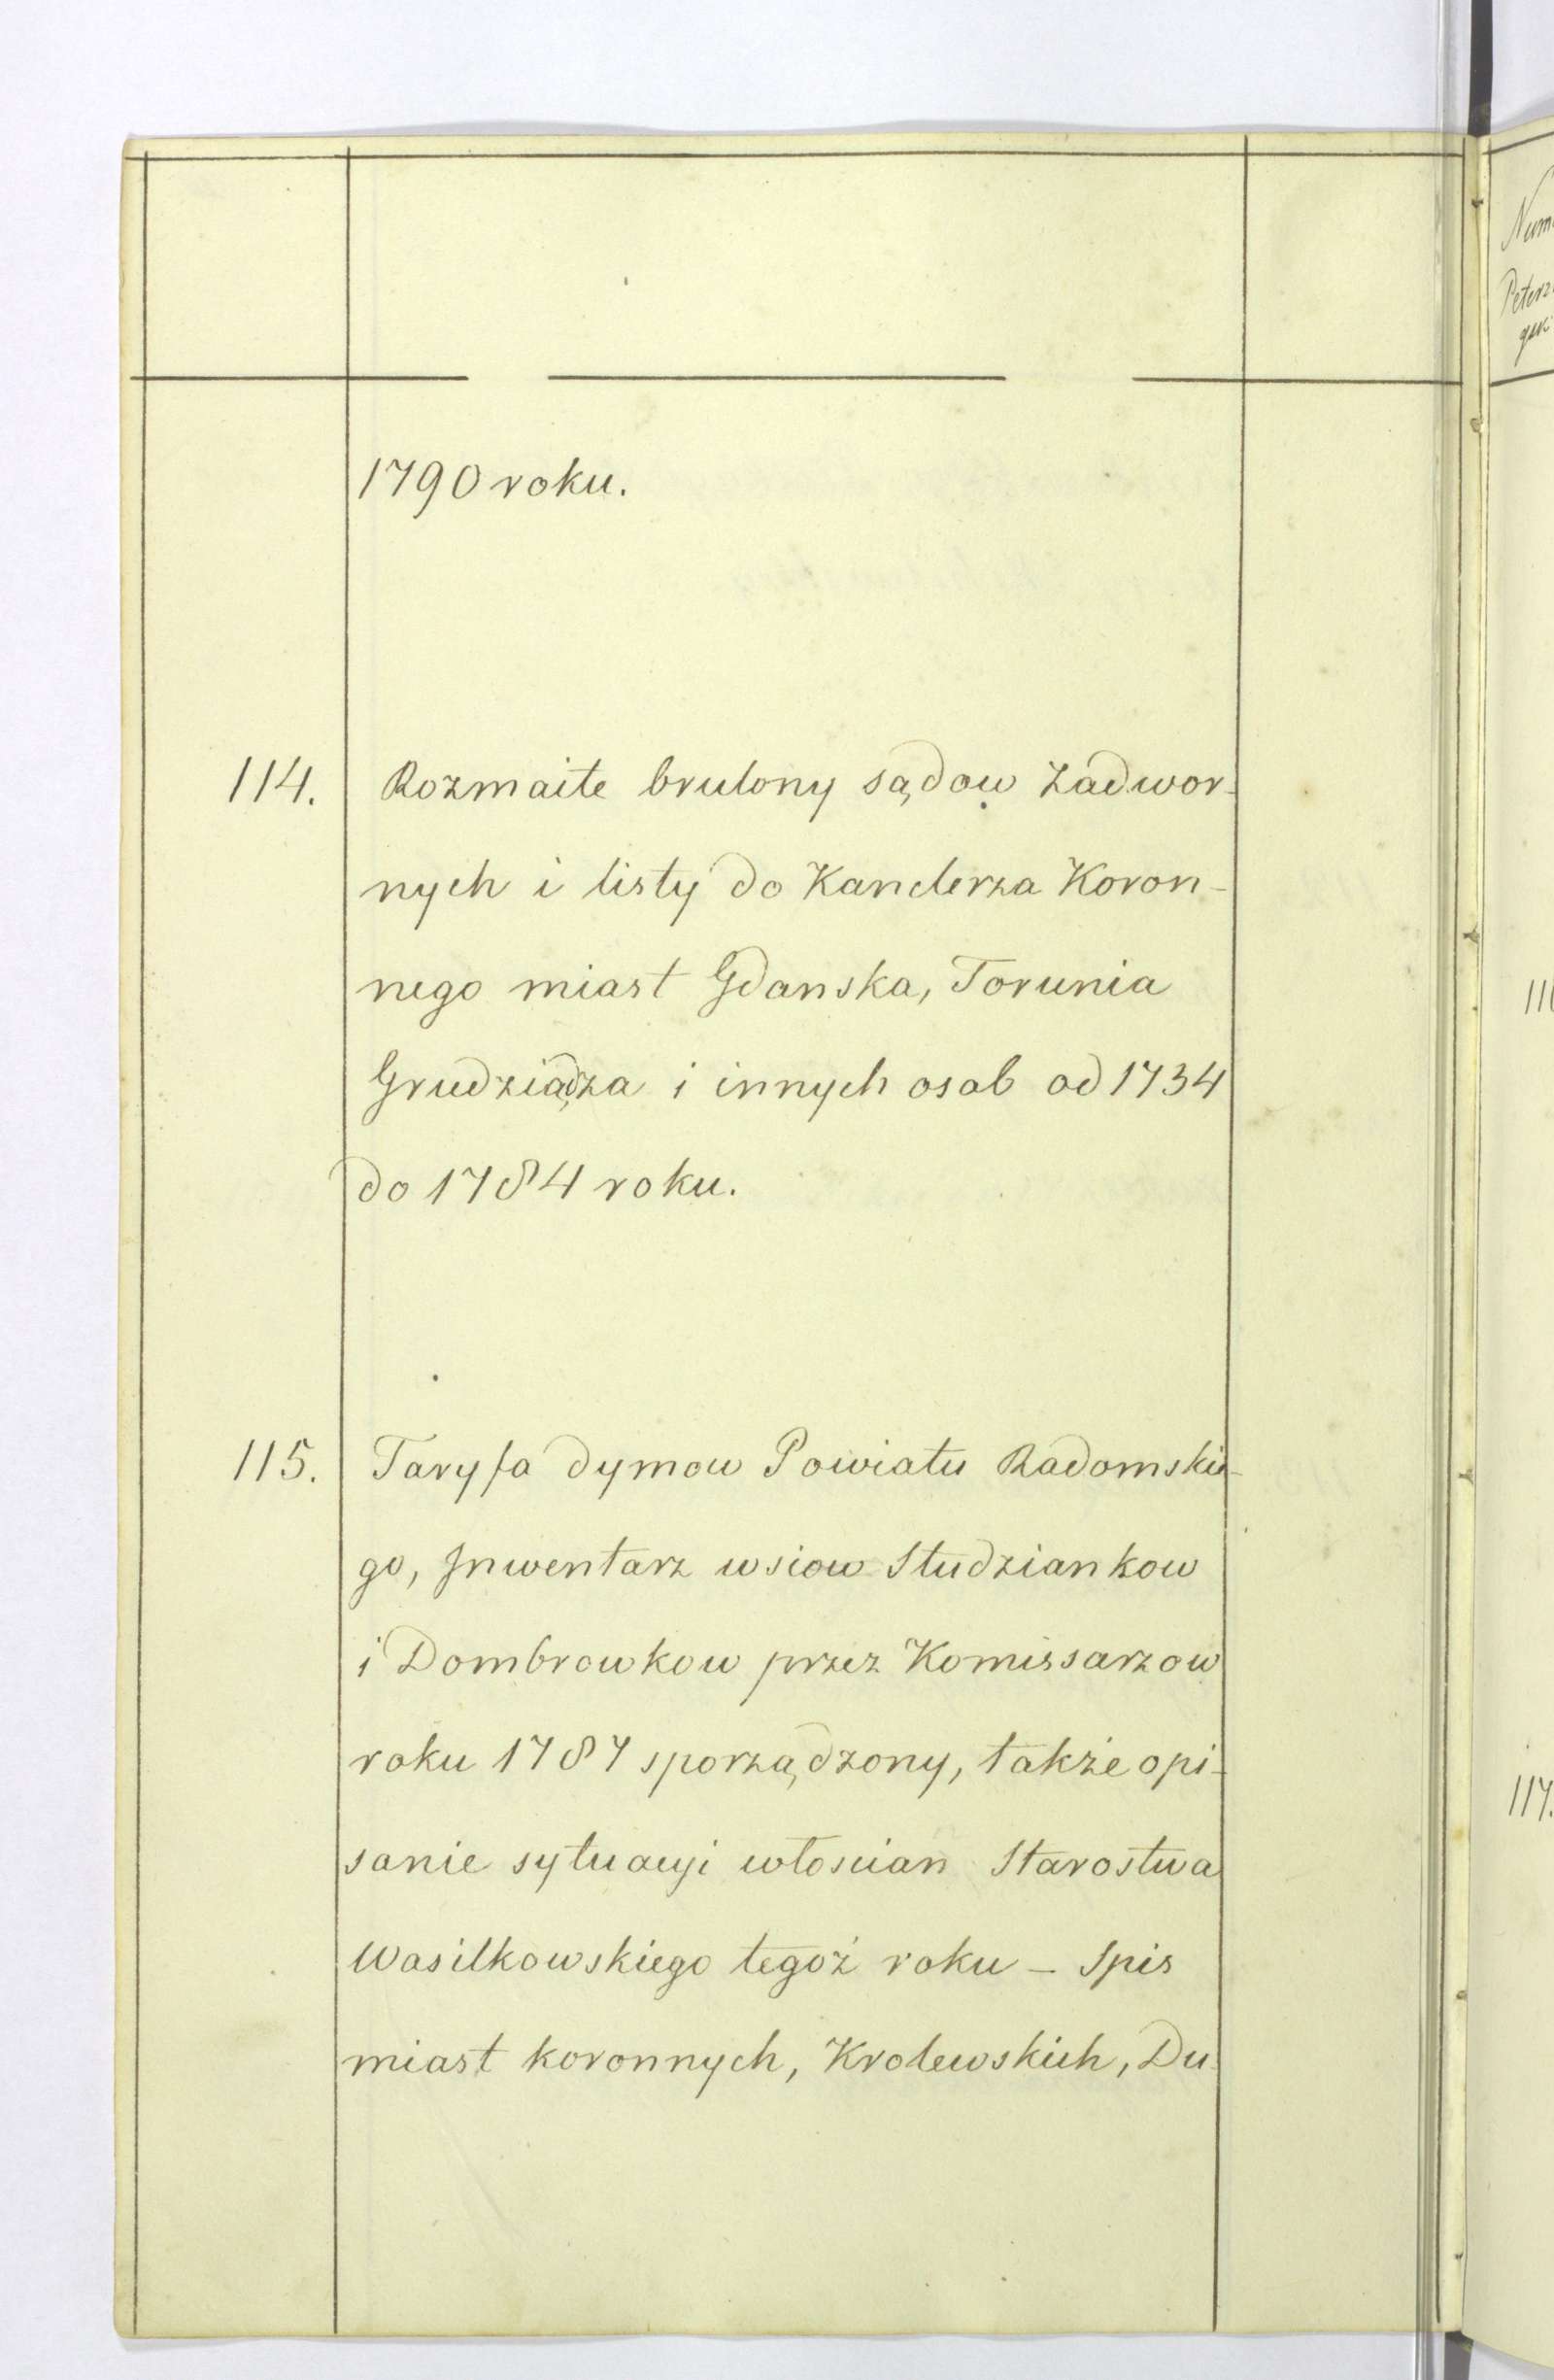 1790 roku.
114. Rozmaite brulony sądow Zadwor-
nych i listy do Kanclerza Koron-
nego miast Gdanska, Torunia
Grudziądza i innych osob od 1734
do 1784 roku.
115. Taryfa dymow Powiatu Radomskie-
go, Inwentarz wsiow Studziankow
i Dombrowkow przez Komissarzow
roku 1787 sporządzony, także opi-
sanie sytuacyi włoscian Starostwa
Wasilkowskiego tegoż roku – Spis
miast koronnych, Krolewskich, Du-
Num
Peters
117.